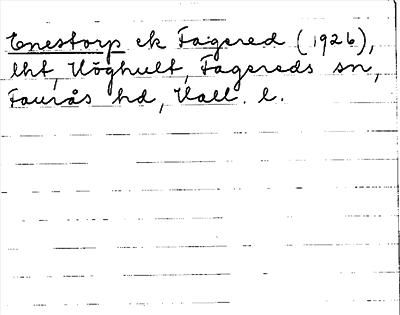 Enestorp ek Fagered (1926),
lht, Höghult, Fagereds sn,
Faurås hd, Hall. l.